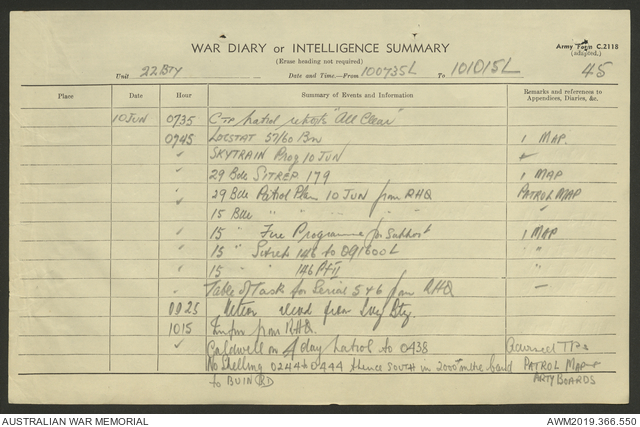 WAR DIARY or INTELLIGENCE SUMMARY
Army Form C.2118
(adapted.)
(Erase heading not required)
Unit 22 BTY Date and Time.—From 100735L To 101015L 45
Place Date Hour Summary of Events and Information Remarks and references to Appendices, Diaries, &c.
10 JUN 0735 patrol reports "All Clear"
0745 LOCSTAT 57/60 Bn 1 MAP.
" SKYTRAIN Prog 10 JUN
" 29 Bde SITREP 179 1 MAP
" 29 Bde Patrol Plan 10 JUN from RHQ PATROL MAP
15 Bde " " " " "
" 15 " Fire Programme for Support 1 MAP
" 15 " Sitrep 146 to 091600L " "
" 15 " 146 Pt II "
" Table of Tasks for Serial 5 & 6 from RHQ —
0925 Meteor recd from Svy Bty
1015 Infm from RHQ
" Caldwell on 4 day patrol to 0438 Advised TPs
No Shelling 0244 to 0444 thence SOUTH in 2000 PATROL MAP
to BUIN RD ARTY BOARDS
AUSTRALIAN WAR MEMORIAL AWM2019.366.550